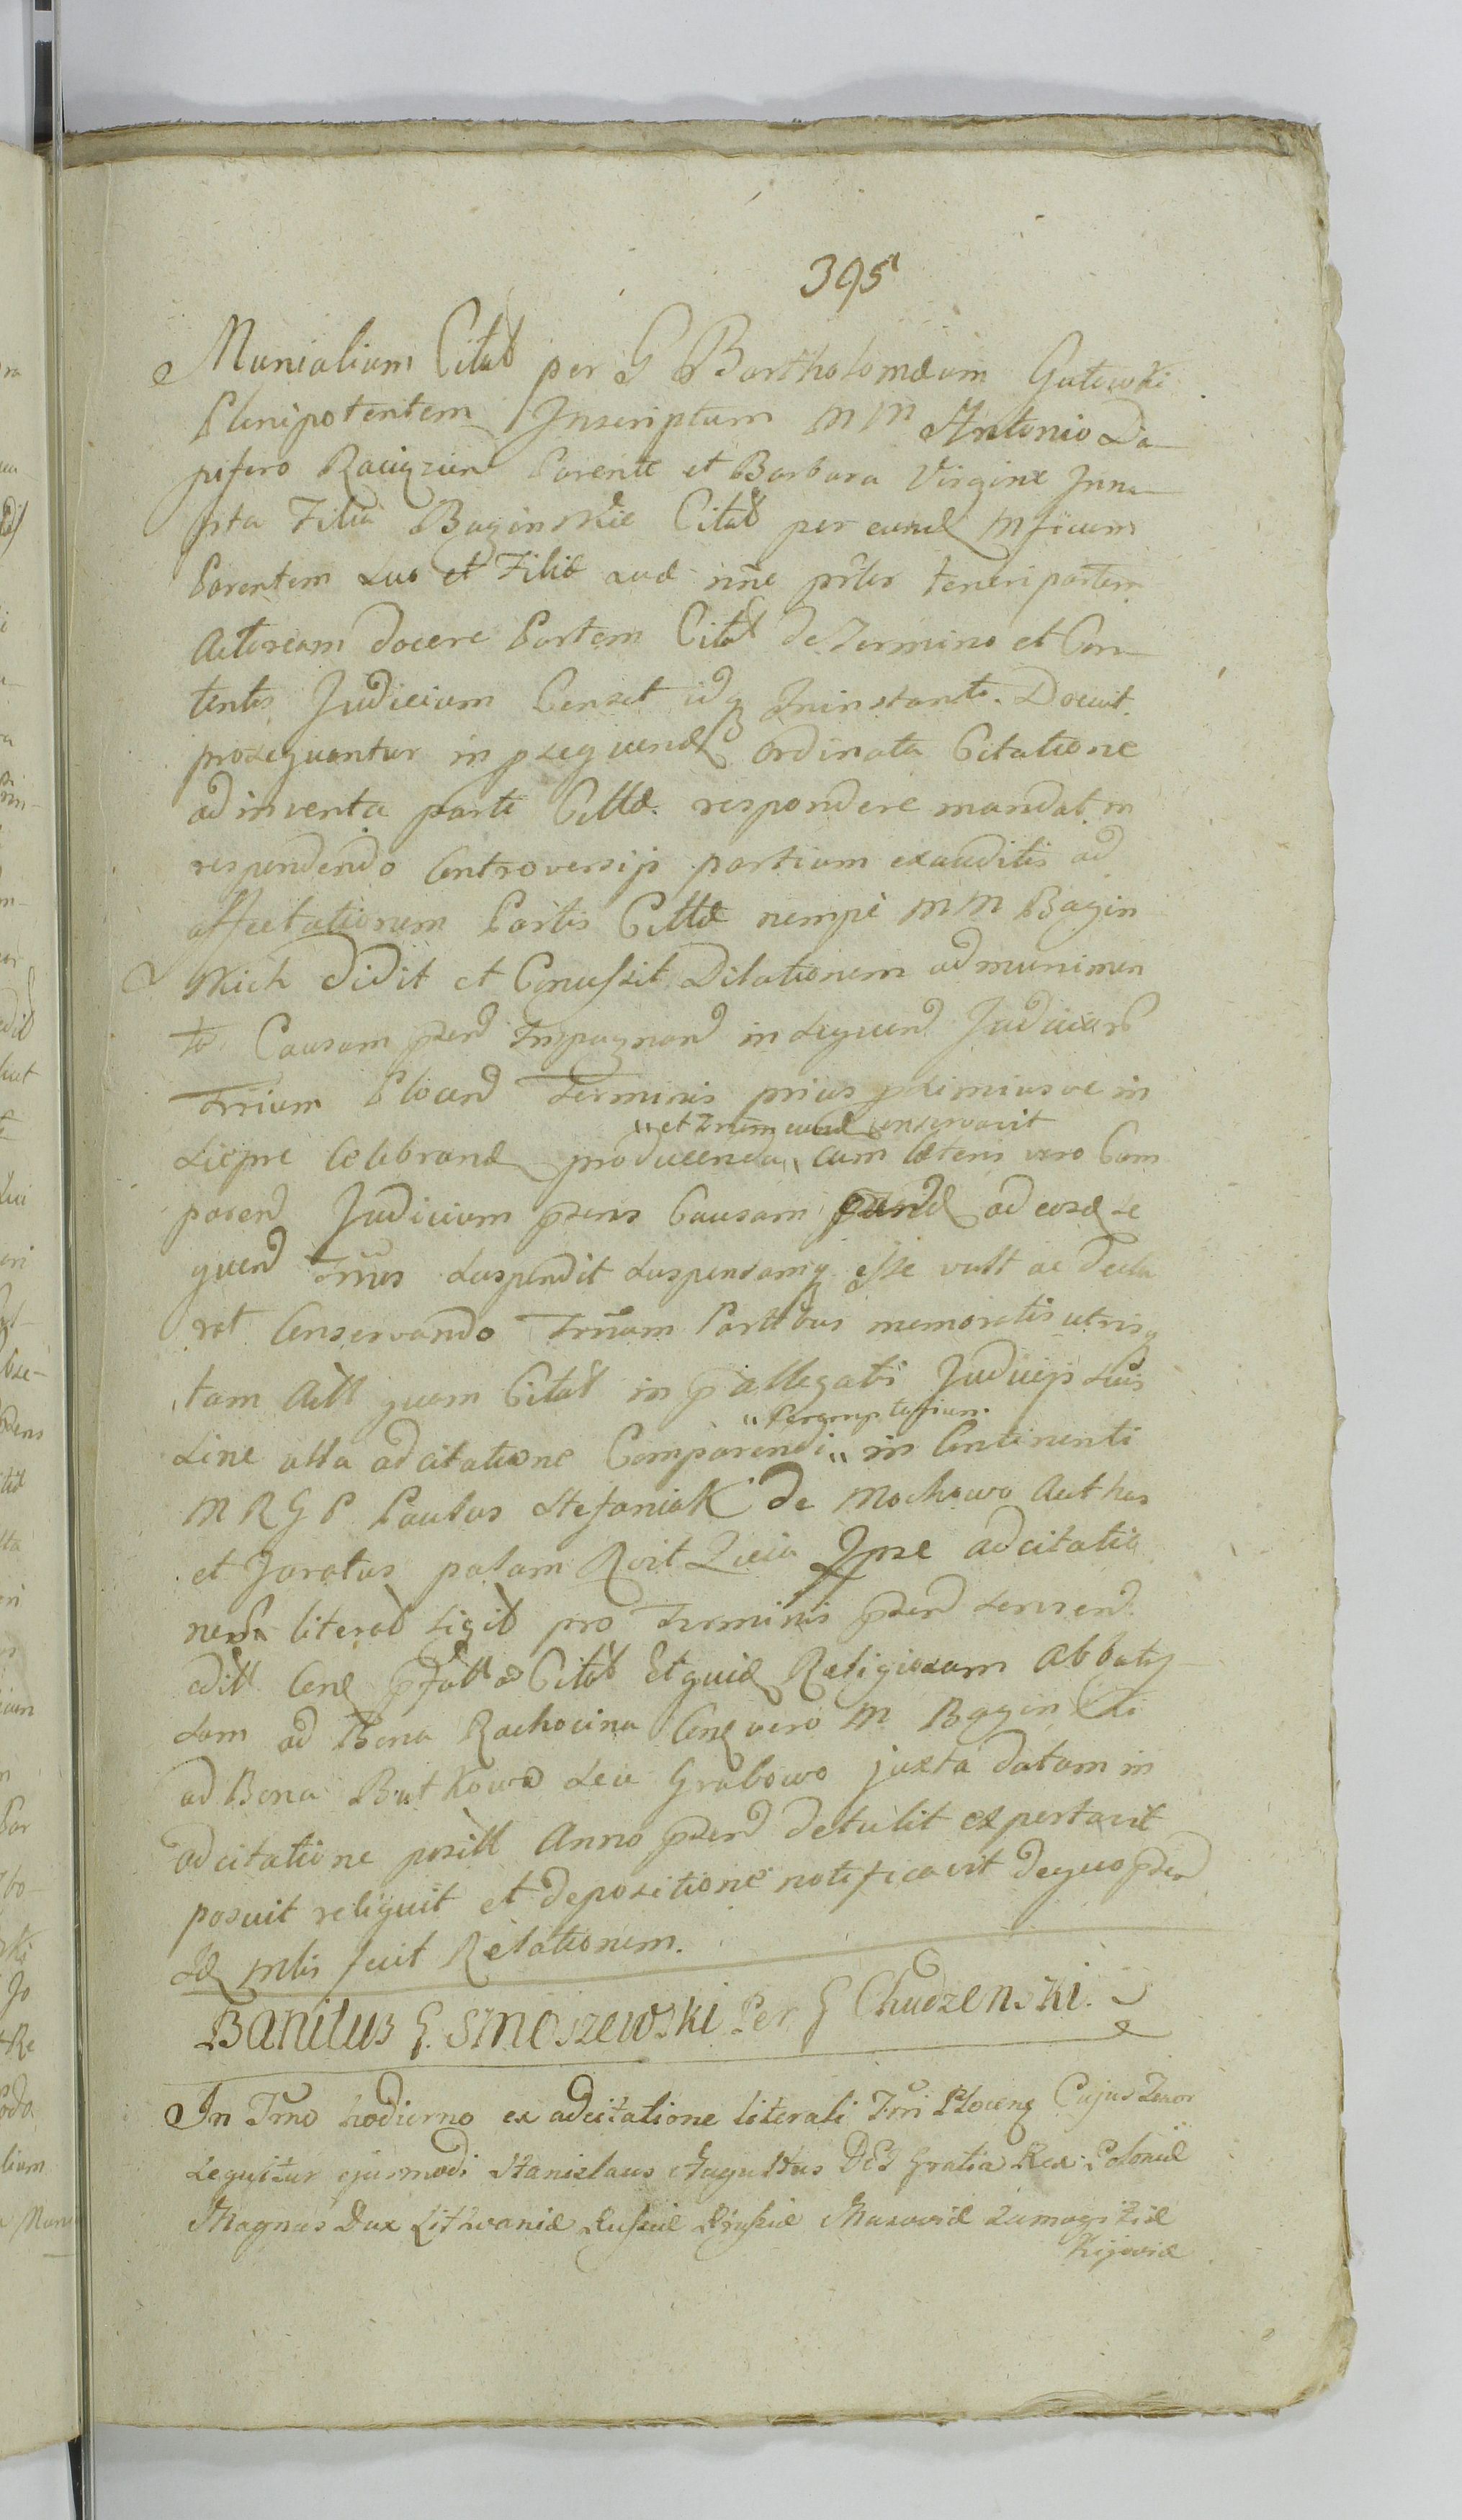 395
Monialium Citat per G Bartholomæum Gutowski
Plenipotentem Inscriptum MM Antonio Da-
pifero Raciąziens Parente et Barbara Virgine Inna-
pta Filia Baginskie Citat per eund Mficum
Parentem suo et Filiæ suæ nne prter teneri partem
Actoream docere Partem Citat de Termino et Con-
tentis Judicium Censet idq Ininstanti. Docuit.
prosequantur in psequend Ordinata Citatione
adinventa parte Cittæ respondere mandat in
respondendo Controversijs partium exauditis ad
affectationem Partis Cittæ nempe MM Bagin
skich dedit et Concessit Dilationem ad munimen
ta Causam psen Impugnand in sequend Judicior
Trrium Plocen Terminis prius pximiusve in
"et Trnum eund conservavit
Siepre Celebrand producenda" cum cæteris vero Com
parend Judicium psens Causam psend ad eosd se
quend Trnos suspendit suspensamq esse vult ac decla
rat Conservando Trnum Partibus memoratis utrisq
tam Actt quam Citat in p allegatis Judicijs suis
"Peremptorium.
sine ulla adcitatione Comparendi" in Continenti
M R G P Paulus Stefaniak de Mochowo Authus
et Juratus palam Rvit Quia Ipse adcitatio
nem literat sigit pro Terminis psen serviend
editt Cone pfatt ad Citat Et quid Religiosam Abbatis
sam ad Bona Rachocina Cone vero M Baginski
ad Bona Butkowo seu Grabowo juxta datam in
adcitatione positt Anno psen detulit expertavit
posuit reliquit et depositione notificavit de quo psen
se mlis fuit Relationem.
Banitus G. Smoszewski Per G Chudzenski.
In Tmo hodierno ex adcitatione literali Trri Plocens Cujus Tenor
sequitur ejusmodi Stanislaus Augustus DEI Gratia Rex Poloniæ
Magnus Dux Lithvaniæ Russiæ Prussiæ Masoviæ Samogitiæ
Kijoviæ